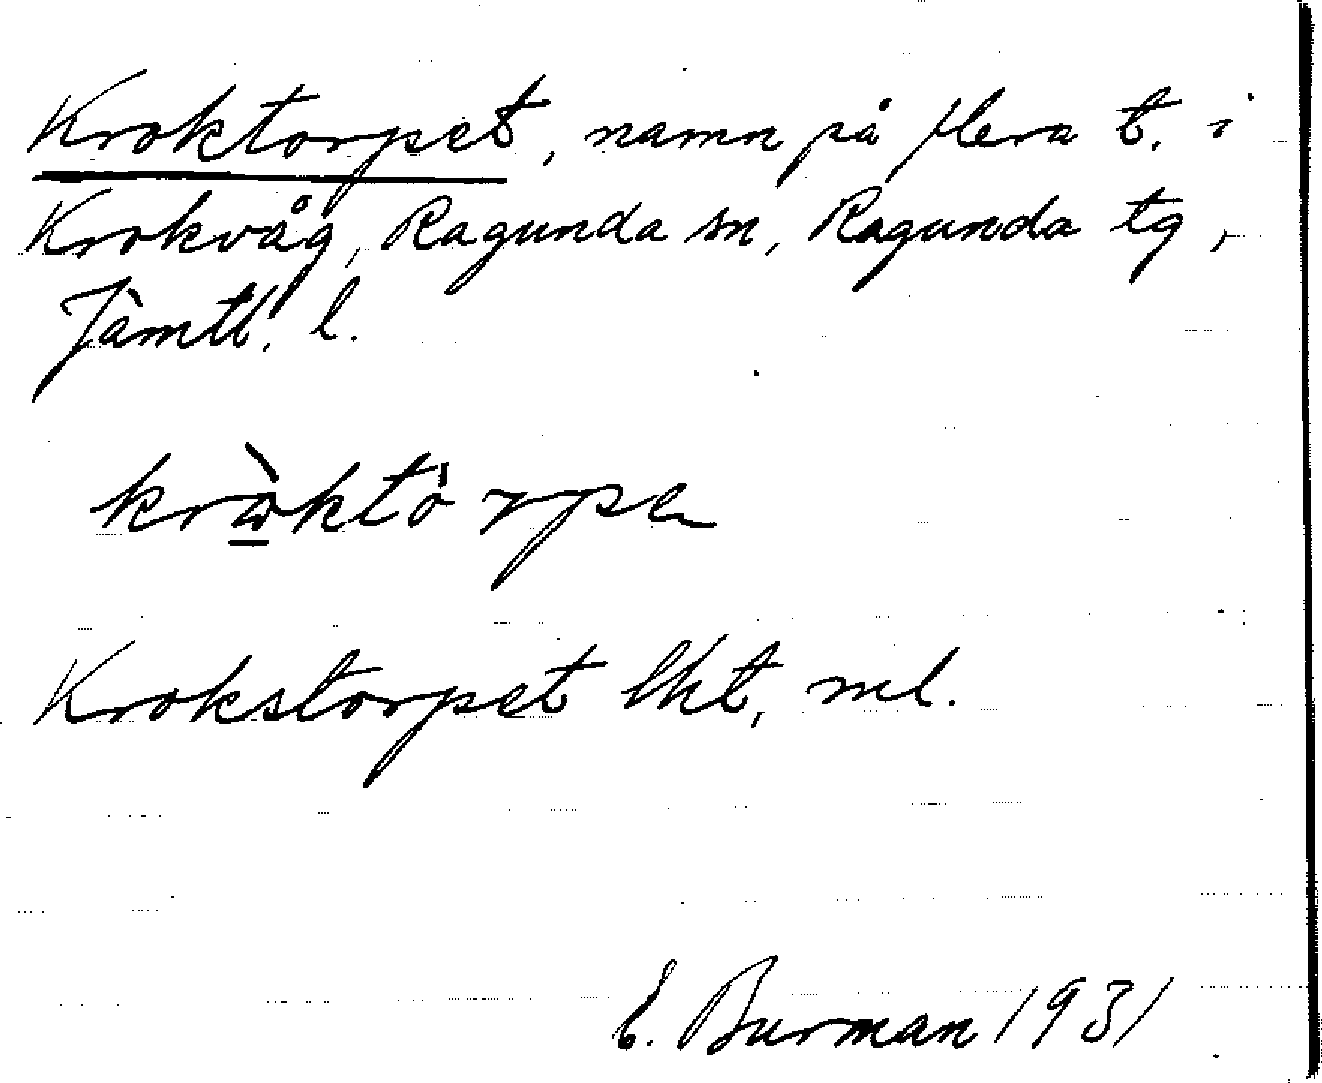 Kroktorpet, namn på flera t. i
Krokvåg, Ragunda sn, Ragunda tg,
Jämtl. l.
Krokstorpet lkt, ml.
E. Burman 1931